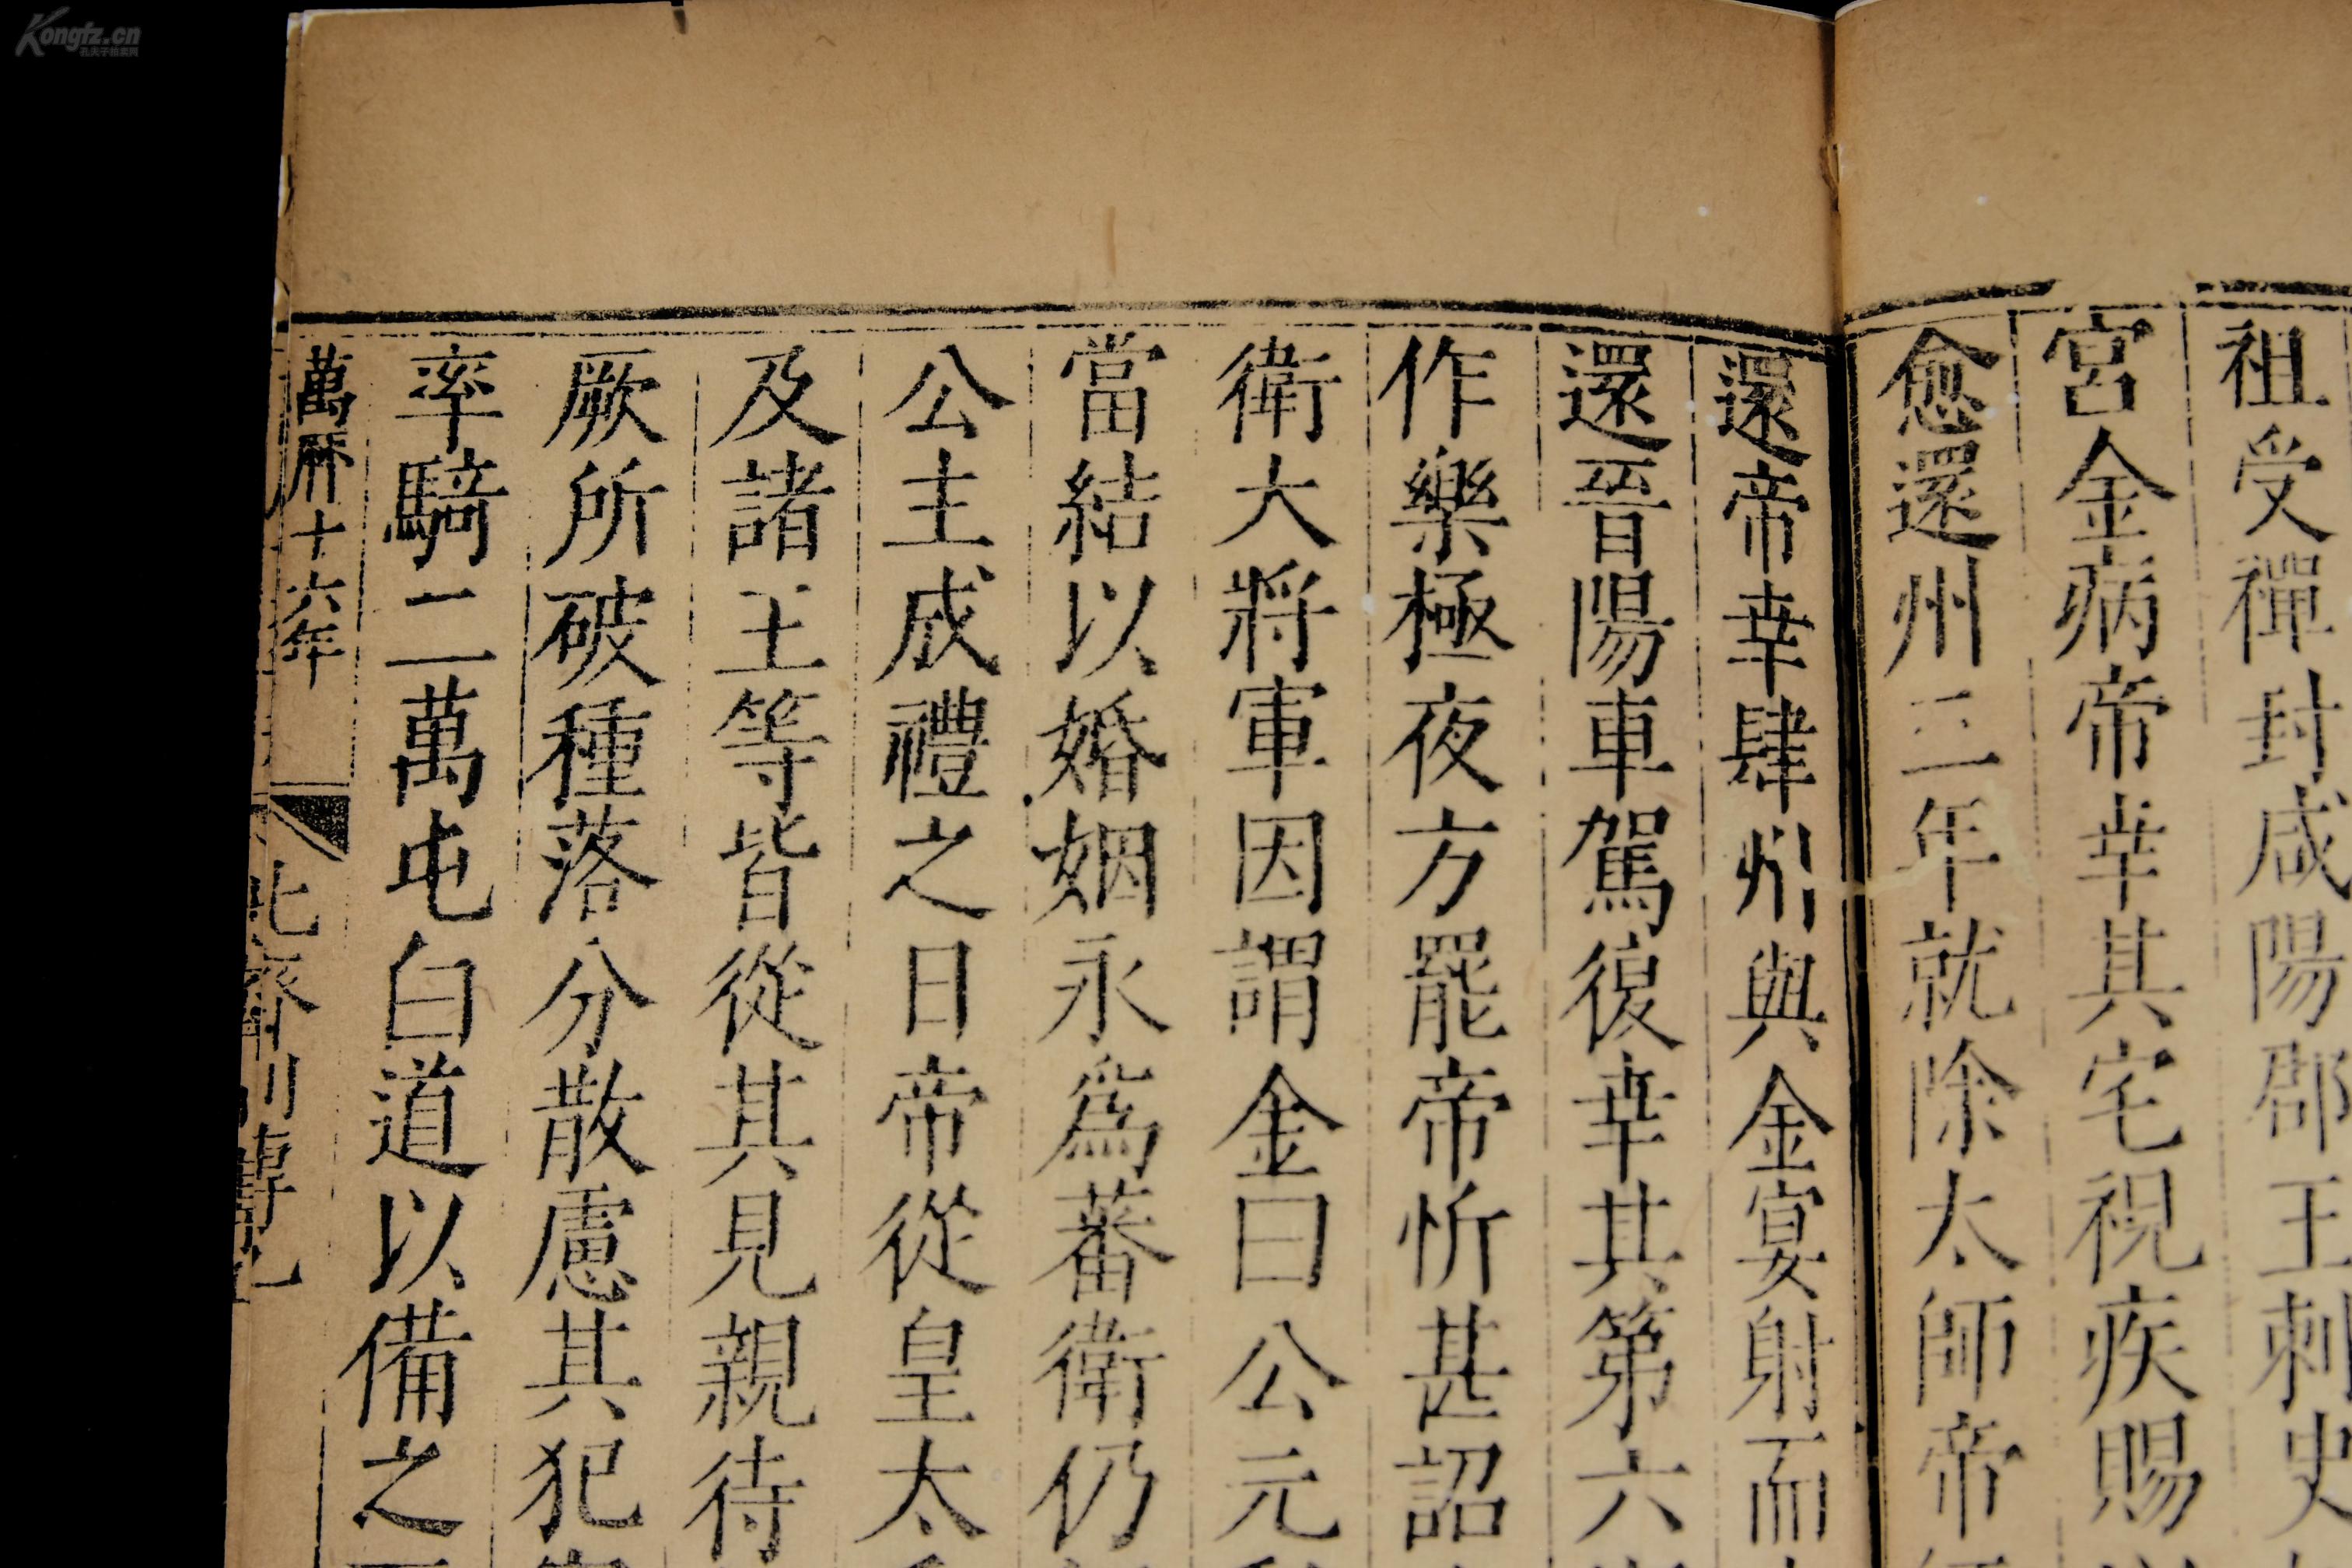 Kongfz.cn
祖受禪封咸陽郡王刺史
宮金病帝幸其宅視疾賜
愈還州三年就除太師帝
還帝幸肆州與金宴射而
還晉陽車駕復幸其第六
作樂極夜方罷帝忻甚詔
衛大將軍因謂金曰公元
當結以婚姻永爲蕃衛仍
公主成禮之日帝從皇太
及諸王等皆從其見親待
厥所破種落分散慮其犯
率騎二萬屯白道以備之
萬曆十六年
北齊列傳九